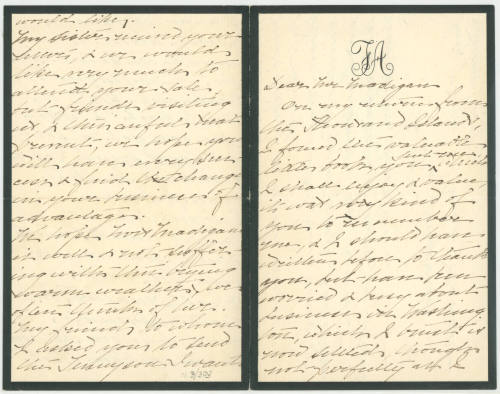 FA
Dear Mr Madigan
On my return from
the Thousand Islands,
I found the valuable
book, you sent me
I shall enjoy & value,
it was very kind of
you to remember
me, & I should have
written before to thank
you, but have been
worried & busy about
business in Washing
ton, which I trust is
now settled, though
not perfectly as I
would like.
My sister received your
letters, & we would
like very much to
attend your sale,
but friends visiting
us, & this awful heat
prevent, we hope you
will have every suc-
cess & find the change
in your business of
advantage.
We hope Mrs Madigan
is well & not suffer
ing with this trying
warm weather, we
often think of her.
My friend, to whom
I asked you to send
the Tennyson I want